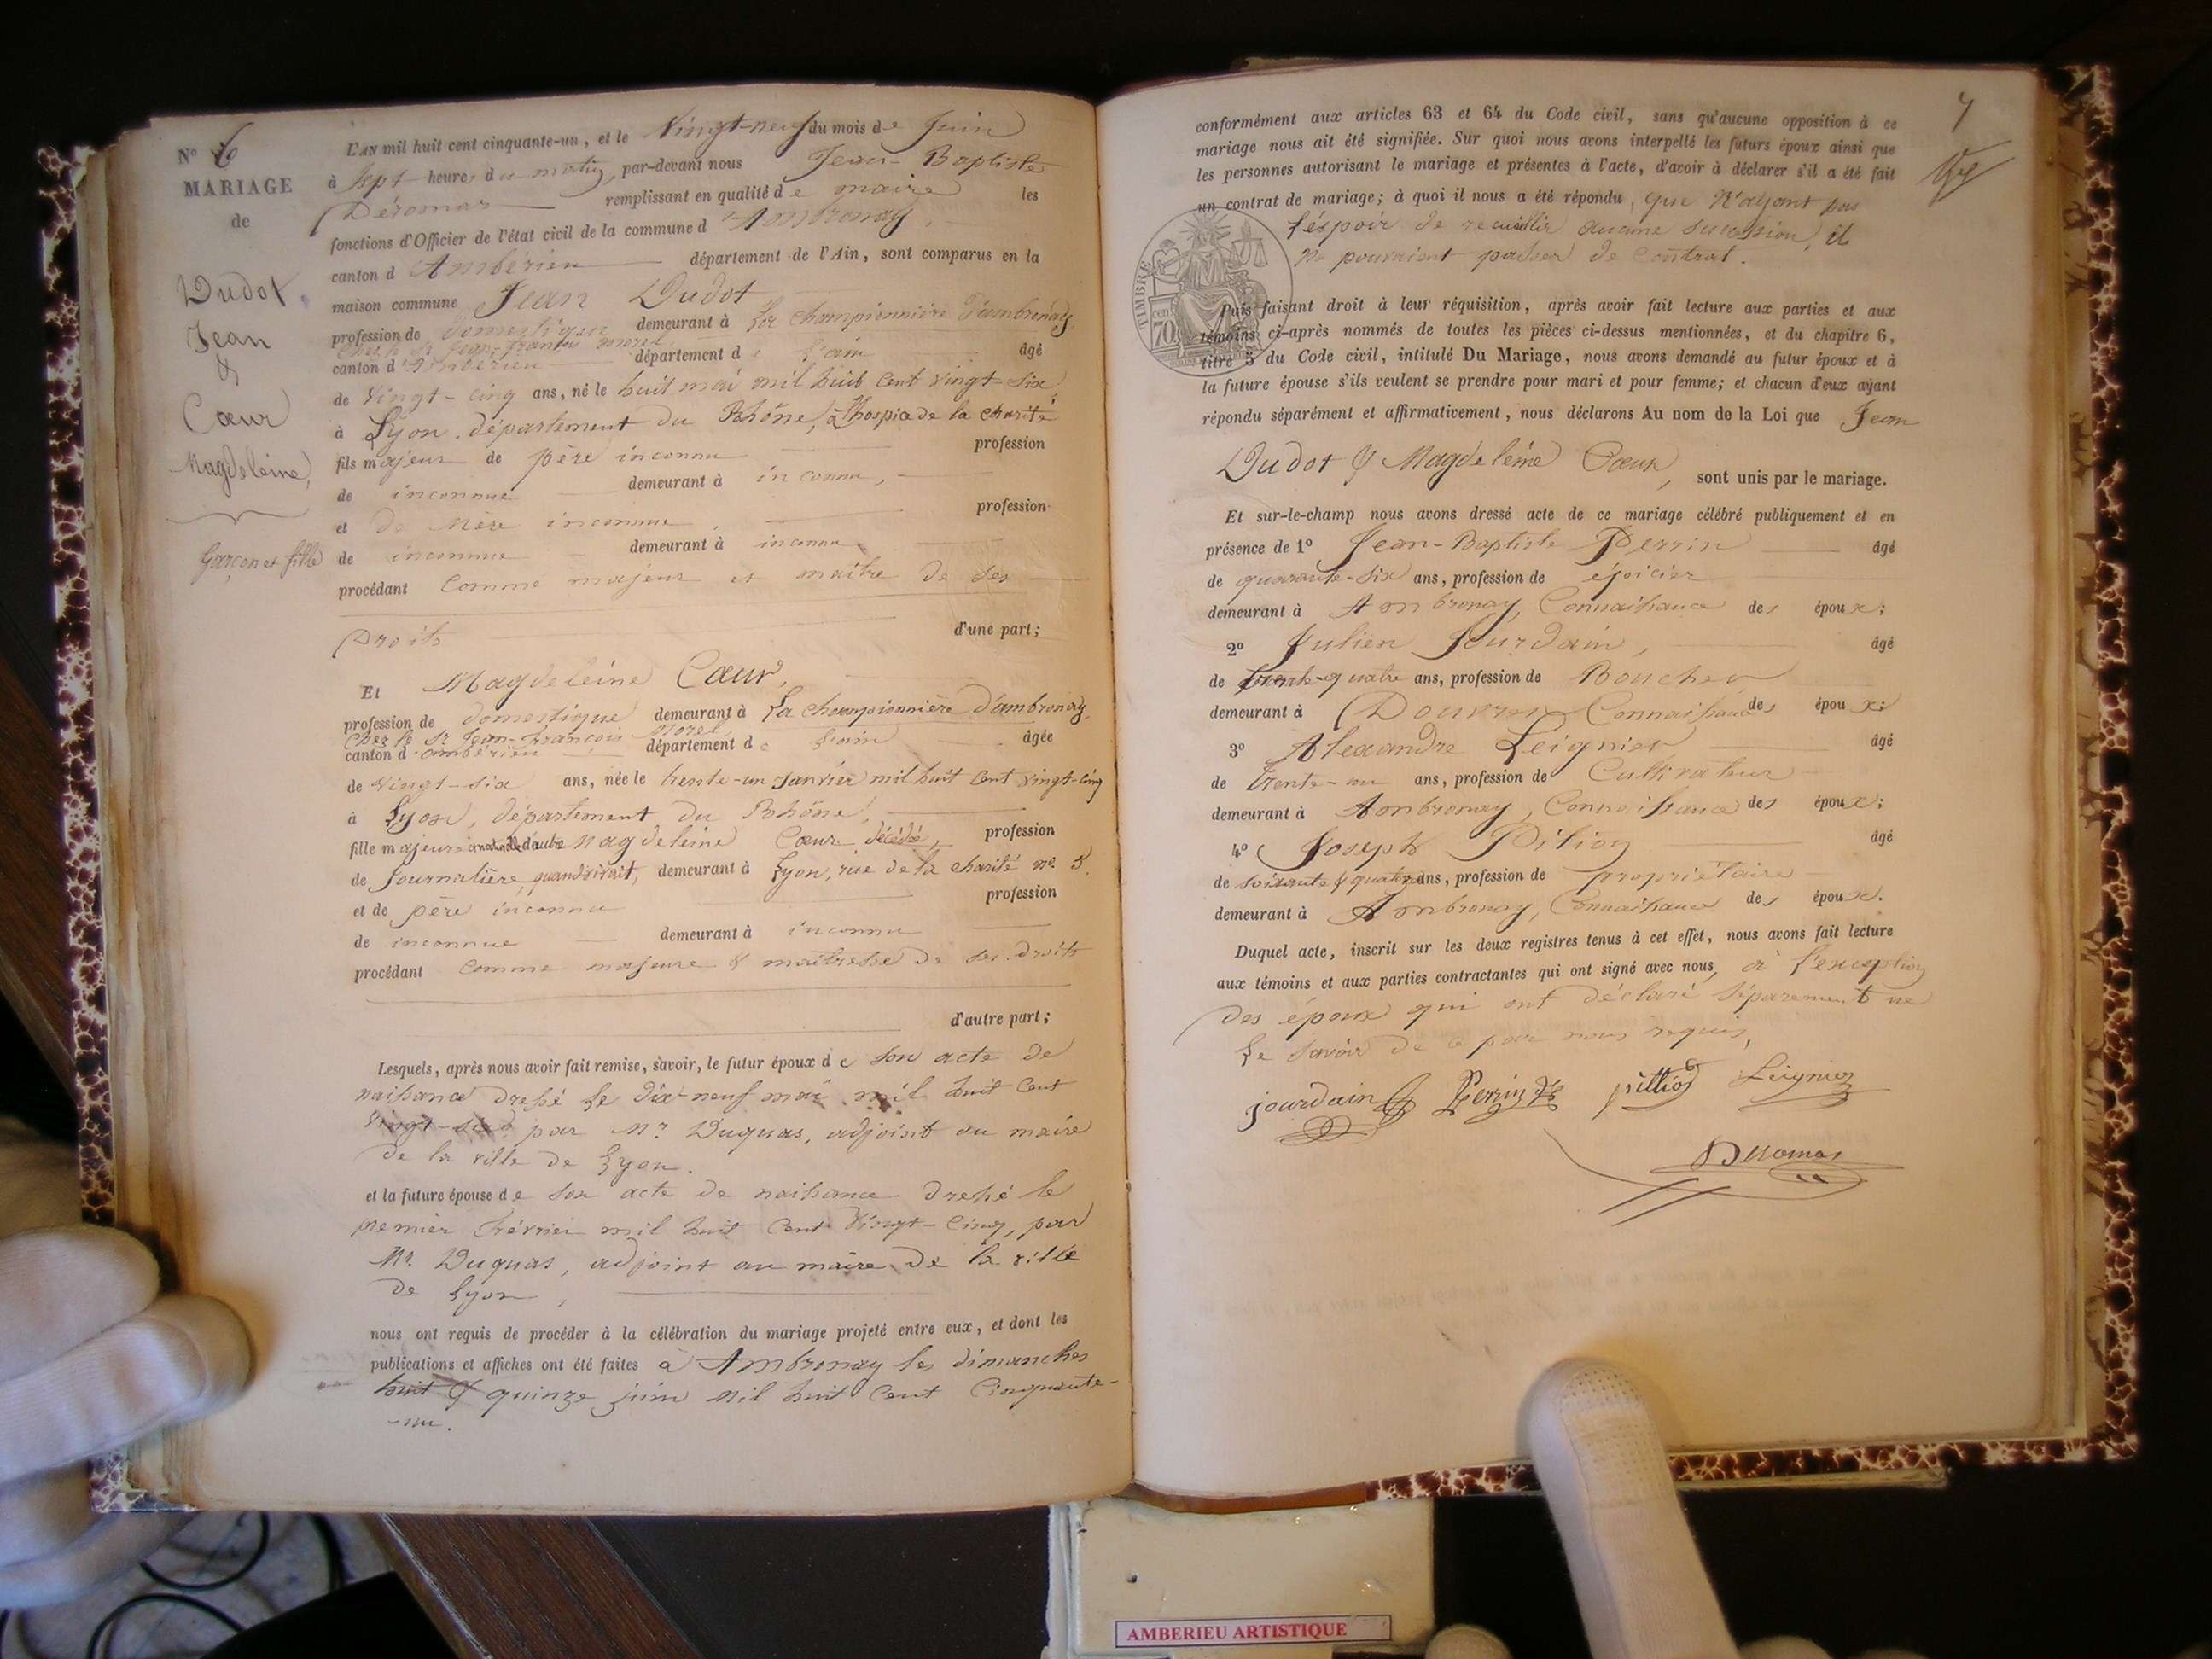 N° 6
MARIAGE
de
Dudot
Jean
&
Cœur
Magdeleine,
Garçon et fille
L'AN mil huit cent cinquante-un, et le Vingt-neuf du mois de Juin
à Sept heures du matin, par-devant nous Jean-Baptiste
Déromas remplissant en qualité de maire les
fonctions d'Officier de l'état civil de la commune d'Ambronay,
canton d'Ambérieu département de l'Ain, sont comparus en la
maison commune Jean Dudot
profession de Domestique demeurant à La championnière d'ambronay,
chez le Sr Jean-françois morel
canton d'ambérieu département de l'ain âgé
de Vingt-cinq ans, né le huit mai mil huit cent vingt-six,
à Lyon, département du Rhône, à l'hospice de la charité
fils majeur de père inconnu profession
de inconnue demeurant à inconnu,
et de Mère inconnue, profession
de inconnue demeurant à inconnu
procédant comme majeur et maître de ses
Droits d'une part;
Et Magdeleine Cœur,
profession de domestique demeurant à La championnière d'ambronay,
chez le Sr Jean-françois Morel,
canton d'ambérieu département de l'ain âgée
de Vingt-six ans, née le trente-un Janvier mil huit cent vingt-cinq
à Lyon, département du Rhône,
fille majeure Magdeleine Cœur décédée, profession
de Journalière, quand vivait, demeurant à Lyon, rue de la charité n° 5.
et de père inconnu profession
de inconnue demeurant à inconnu
procédant comme majeure & maîtresse de ses droits
d'autre part;
Lesquels, après nous avoir fait remise, savoir, le futur époux de son acte de
naissance dressé le dix-neuf mai mil huit cent
Vingt-six par Mr Duquas, adjoint au maire
de la ville de Lyon.
et la future épouse de son acte de naissance dressé le
premier février mil huit cent Vingt-cinq, par
Mr Duquas, adjoint au maire de la ville
de Lyon,
nous ont requis de procéder à la célébration du mariage projeté entre eux, et dont les
publications et affiches ont été faites à Ambronay les dimanches
huit & quinze juin mil huit cent cinquante-
-un.
7
conformément aux articles 63 et 64 du Code civil, sans qu'aucune opposition à ce
mariage nous ait été signifiée. Sur quoi nous avons interpellé les futurs époux ainsi que
les personnes autorisant le mariage et présentes à l'acte, d'avoir à déclarer s'il a été fait
un contrat de mariage; à quoi il nous a été répondu, que n'ayant pas
l'éspoir de recuillir aucune sucession, il
ne pouraient passer de contrat.
TIMBRE
70 cen
Puis faisant droit à leur réquisition, après avoir fait lecture aux parties et aux
témoins ci-après nommés de toutes les pièces ci-dessus mentionnées, et du chapitre 6,
titre 5 du Code civil, intitulé Du Mariage, nous avons demandé au futur époux et à
la future épouse s'ils veulent se prendre pour mari et pour femme; et chacun d'eux ayant
répondu séparément et affirmativement, nous déclarons Au nom de la Loi que Jean
Dudot & Magdeleine Cœur, sont unis par le mariage.
Et sur-le-champ nous avons dressé acte de ce mariage célébré publiquement et en
présence de 1° Jean-Baptiste Perrin âgé
de quarante-six ans, profession de épicier
demeurant à Ambronay, Connaissance des époux;
2° Julien Jourdain, âgé
de trente-quatre ans, profession de Boucher
demeurant à Douvres Connaissance des époux;
3° Alexandre Leignier âgé
de trente-un ans, profession de Cultivateur
demeurant à Ambronay, Connaissance des époux;
4° Joseph Pilioz âgé
de soixante & quatre ans, profession de propriétaire
demeurant à Ambronay, Connaissance des époux.
Duquel acte, inscrit sur les deux registres tenus à cet effet, nous avons fait lecture
aux témoins et aux parties contractantes qui ont signé avec nous, à l'exception
des époux qui ont déclaré séparement ne
le savoir de ce par nous requis,
jourdain Perrin pillioz Leignier
Deromas
AMBERIEU ARTISTIQUE